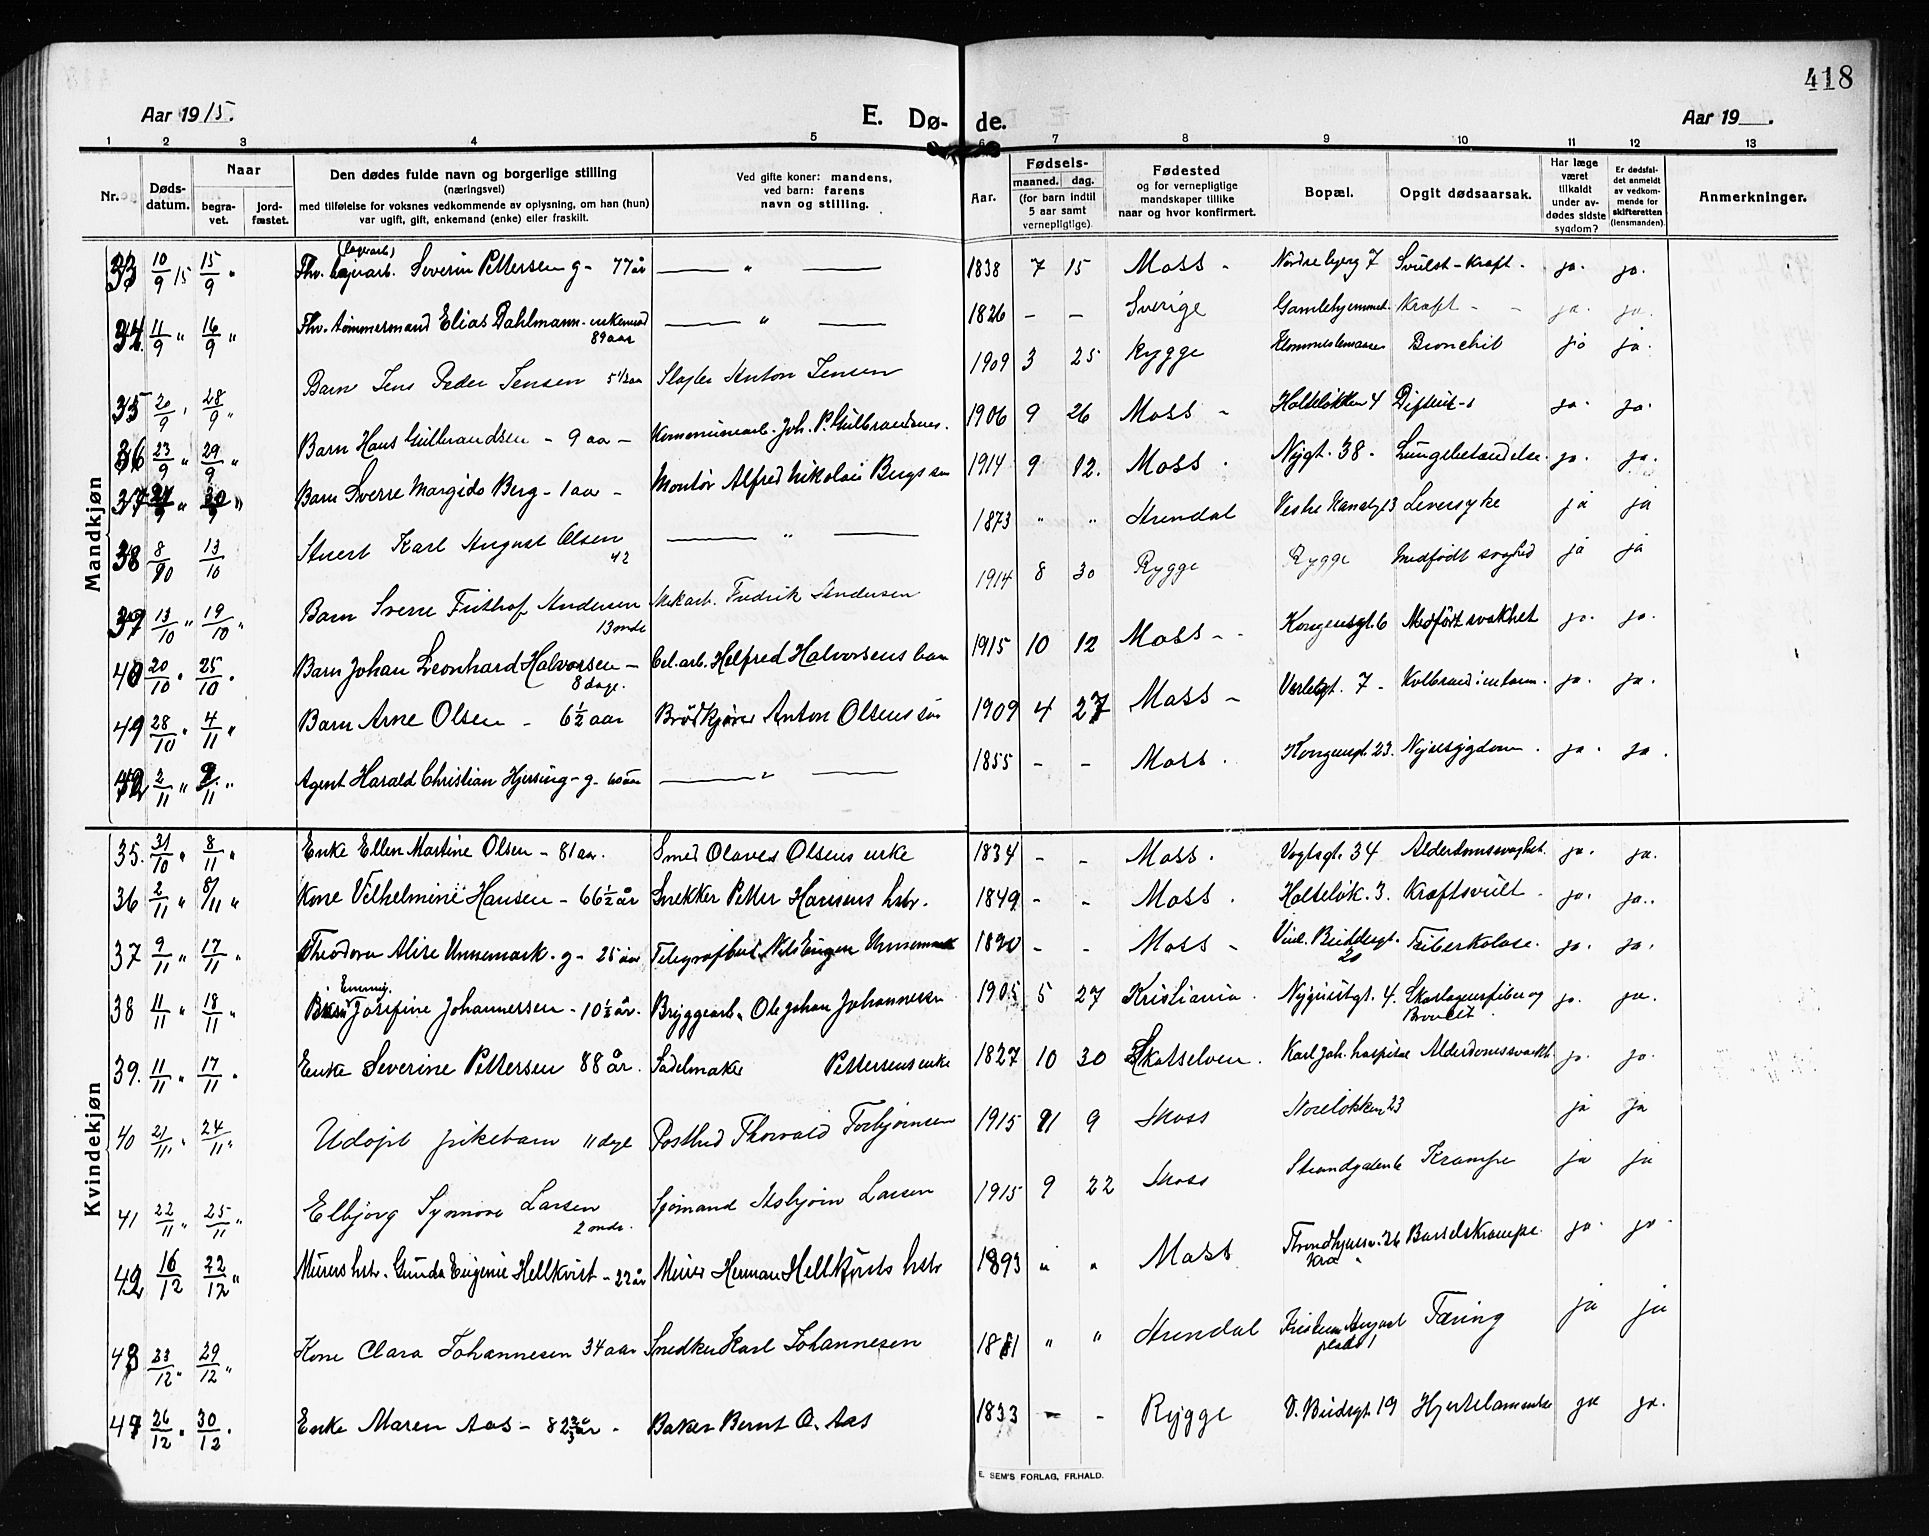 418
Aar 1915.
E. Dø- de.
Aar 19 .
1 2 3 4 5 6 7 8 9 10 11 12 13
Nr.
Døds-datum.
Naar
begra-vet.
jord-fæstet.
Den dødes fulde navn og borgerlige stilling
(næringsvei)
med tilføielse for voksnes vedkommende av oplysning, om han (hun)
var ugift, gift, enkemand (enke) eller fraskilt.
Ved gifte koner: mandens,
ved barn: farens
navn og stilling.
Aar.
Fødsels-
maaned. dag.
(for barn indtil
5 aar samt
vernepligtige).
Fødested
og for vernepligtige
mandskaper tillike
naar og hvor konfirmert.
Bopæl.
Opgit dødsaarsak.
Har læge
været
tilkaldt
under av-
dødes sidste
sygdom?
Er dødsfal-
det anmeldt
av vedkom-
mende for
skifteretten
(lensmanden).
Anmerkninger.
Mandkjøn
33 10/9 15 15/9 " Thv. Severin Pettersen g- 77 år — " — 1838 7 15 Moss - Nordre bjerg 7 Svulst - Kræft - ja. ja.
34. 11/9 " 16/9 " Thv. tømmermand Elias Dahlmann - enkemand 89 aar — " — 1826 - - Sverige Gamlehjemmet. Kræft - - ja. ja.
35 20/9 28/9 " Barn Jens Peder Jensen 5 1/2 aa Slagter Anton Jensen 1909 3 25 Rygge Bronchit ja ja.
36 23/9 " 29/9 " Barn Hans Gulbrandsen - 9 aa - Kommunearb. Joh. P. Gulbrandsens. 1906 9 26 Moss - Holteløkken 4 ja. ja.
37 " 30/9 " Barn Sverre Margido Berg - 1 aar - Montør Alfred Nikolai Bergs søn 1914 9 12. Moss . Nygt. 38 - Lungebetændelse. ja. ja.
38 8/10 13/10 Stuert Karl August Olsen 42 — " — 1873 " " Arendal Vestre Kanalgt 3 Leversyke ja ja
39 13/10 " 19/10 " Barn Sverre Frithof Andersen 13 mdr Mek arb. Fredrik Andersen 1914 8 30 Rygge Rygge Medfødt svaghed ja ja
40 20/10 " 25/10 . Barn Johan Leonhard Halvorsen - 8 dage. Cel. arb. Helfred Halvorsens barn 1915 10 12 Moss - Kongensgt. 6 Medført svakhet ja. ja.
41 28/10 " 4/11 " Barn Arne Olsen - 6 1/2 aar Brødkjører Anton Olsens søn 1909 4 27 Moss - Verlegt. 7 - Kolbrand i ja. ja.
42 2/11 " 9/11 " Agent Harald Christian Hjersing - g - 60 aar — " — 1855 - - Moss . Kongensgt. 23. Nyresygdom . ja. ja.
Kvindekjøn
35. 31/10 " 8/11 " Enke Ellen Martine Olsen - 81 aar. Smed Olaves Olsens enke 1834 - - Moss . Vogtsgt. 34 Alderdomssvaghet. ja. ja.
36 2/11 " 8/11 " Kone Vilhelmine Hansen - 66 1/2 år Snekker Petter Hansens hstr. 1849 - - Moss . Holteløk. 3. Kræftsvulst - ja. ja.
37 9/11 " 17/11 " Theodora Alise Unnemark - g - 25 aar Telegrafbud Nils Eugen Unnemark 1890 - - Moss - Vinc. Buddesgt. 20 Tuberkolose. ja. ja.
38 11/11 " 18/11 " Josefine Johannessen - 10 1/2 år. Bryggearb. Ole Johan Johannessen 1905 5 27 Kristiania . 4. Skarlagensfeber og Bronkit. ja. ja.
39. 11/11 " 17/11 . Enke Severine Pettersen 88 år. Sadelmaker Pettersens enke 1827 10 30 Skotselven . Karl Joh. hospital Alderdomssvakh. ja. ja.
40 21/11 " 24/11 " Udøpt pikebarn 11 dage Postbud Thorvald Torbjørnsen 1915 11 9 Moss Noreløkken 23 ja ja
41 22/11 " 25/11 " Elbjørg Synnøve Larsen 2 mdr. Sjømand Asbjørn Larsen 1915 9 22 Moss Strandgaten 6 Krampe ja ja
42 16/12 22/12 " Murers hstr. Gunda Eugenie Hellkvist - 22 år Murer Herman Hellkvists hstr 1893 " " Moss Kra Barselskrampe. ja. ja.
43 23/12 " 29/12 " Kone Clara Johannesen 34 aar Snedker Karl Johannesen 1881 " " Arendal Kristian August plads 1 Tæring ja ja
44 26/12 . 30/12 . Enke Maren Aas - 82 2/3 år - Baker Bernt O. Aas 1833 - - Rygge V. Budsgt. 19 ja ja.
E. SEM'S FORLAG, FR.HALD.